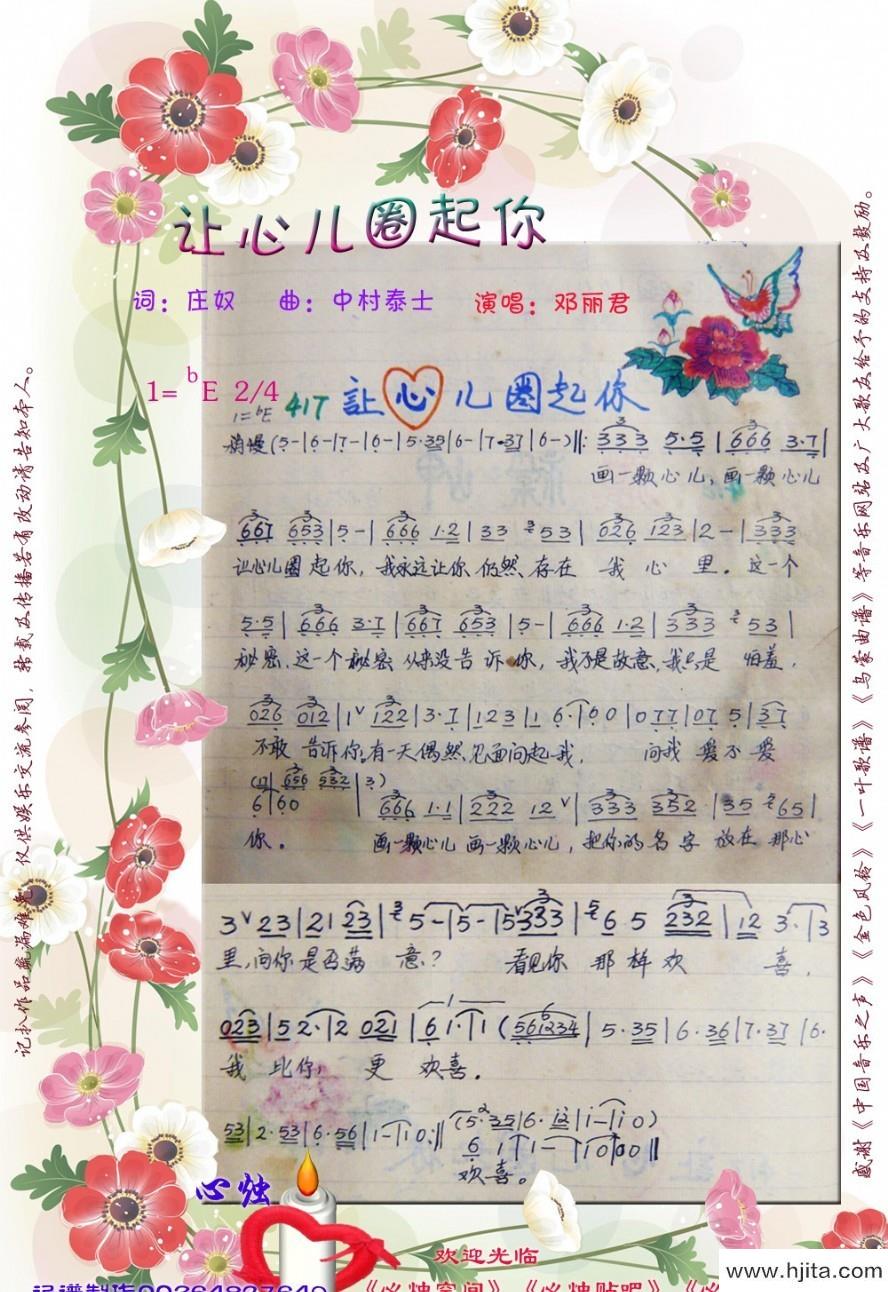 让心儿圈起你
词：庄奴 曲：中村泰士 演唱：邓丽君
1= bE 2/4
1=bE 417 讓心儿圈起你
浪慢 (5-|6-|7-|6-|5·35|6-|7·37|6-)‖: 333 5·5|666 3·7|
画一颗心儿，画一颗心儿
667 653|5-|666 1·2|33 53|026 123|2-|333
让心儿圈起你，我永远让你仍然存在我心里。这一个
5·5|666 3·7|667 653|5-|666 1·2|333 53|
秘密，这一个秘密从来没告诉你，我不是故意，我只是怕羞，
026 012|1∨122|3·7|123|1 6·|60|077|07 5|37
不敢告诉你，有一天偶然见面问起我，问我爱不爱
(17|656 532|3)
6|60 666 1·1|222 12∨|333 352|35 65|
你。 画一颗心儿画一颗心儿，把你的名字放在那心
3∨23|21 23|5-|5-|5∨333|6 5 232|12 3·|3
里，问你是否满意？ 看见你那样欢喜，
023|52·|2 021|61·|1 (561234|5·35|6·36|7·37|6·
我比你更欢喜。
53|2·53|6·56|1-|10:‖ (5·35|6·12|1-|10)
6 1|1-|10|00‖
欢喜。
心烛
欢迎光临
记谱制作00364827649 《心烛空间》《心烛贴吧》《心
www.hjita.com
记扑作品疏漏难免，仅供娱乐交流参阅，转载及传播若有改动请告知本人。
感谢《中国音乐之声》《金色风铃》《一叶歌谱》《乌蒙曲谱》等音乐网站及广大歌友给予的支持及鼓励。